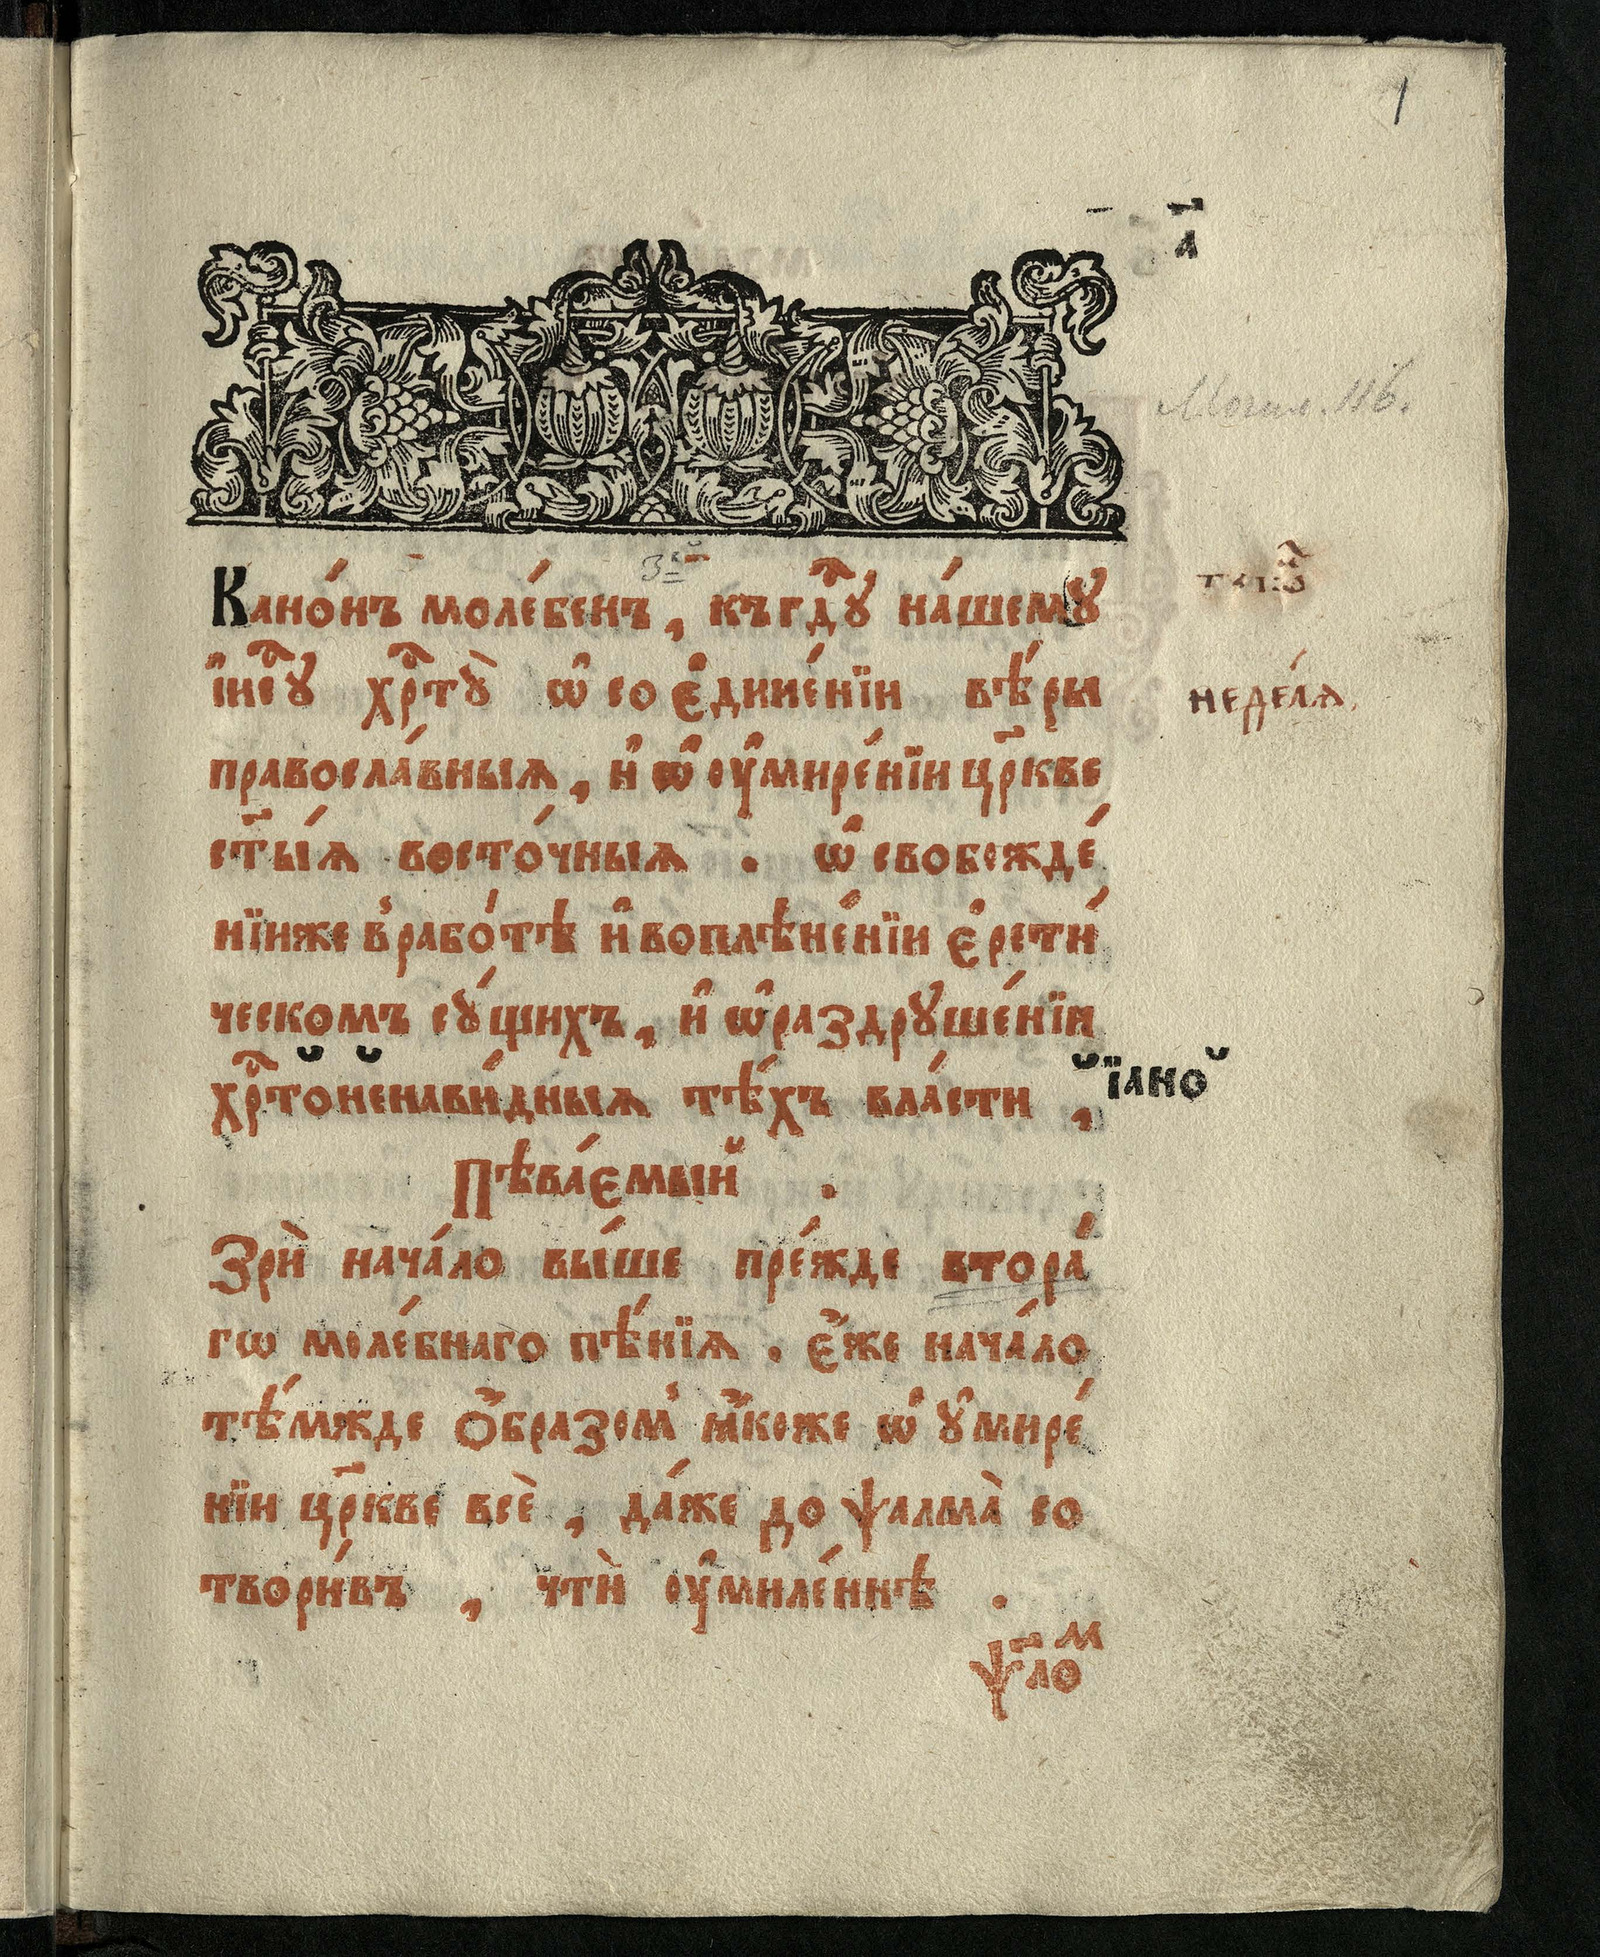 1
а҃
Могил. 116.
Кано́нъ моле́бенъ, къ гдⷭ҇ꙋ на́шемꙋ
і҆исⷭ҇ꙋ хрⷭ҇тꙋ̀ ѡ҆ соє҆дине́нїи вѣ́ры
правосла́вныѧ, и҆ ѡ҆ оу҆мире́нїи цр҃кве
ст҃ы́ѧ восто́чныѧ. ѡ҆ свобожде́
нїиже в̾рабо́тѣ и҆ воплѣне́нїи є҆рети́
ческомъ сꙋ́щихъ, и҆ ѡ҆ раздрꙋше́нїи
хрⷭ҇тоненави́дныѧ тѣ́хъ вла́сти,
їано
Пѣва́емый.
Зрѝ нача́ло вы́ше пре́жде втора́
гѡ моле́бнаго пѣ́нїѧ. є҆́же нача́ло
тѣ́мжде ѻ҆́бразом̾ ꙗ҆́коже ѡ҆ ꙋ҆мире́
нїи цр҃кве всѐ, да́же до ѱалма̀ со
твори́въ, чтѝ оу҆миле́ннѣ.
ѱ҃лоⷨ
недѣ́лѧ